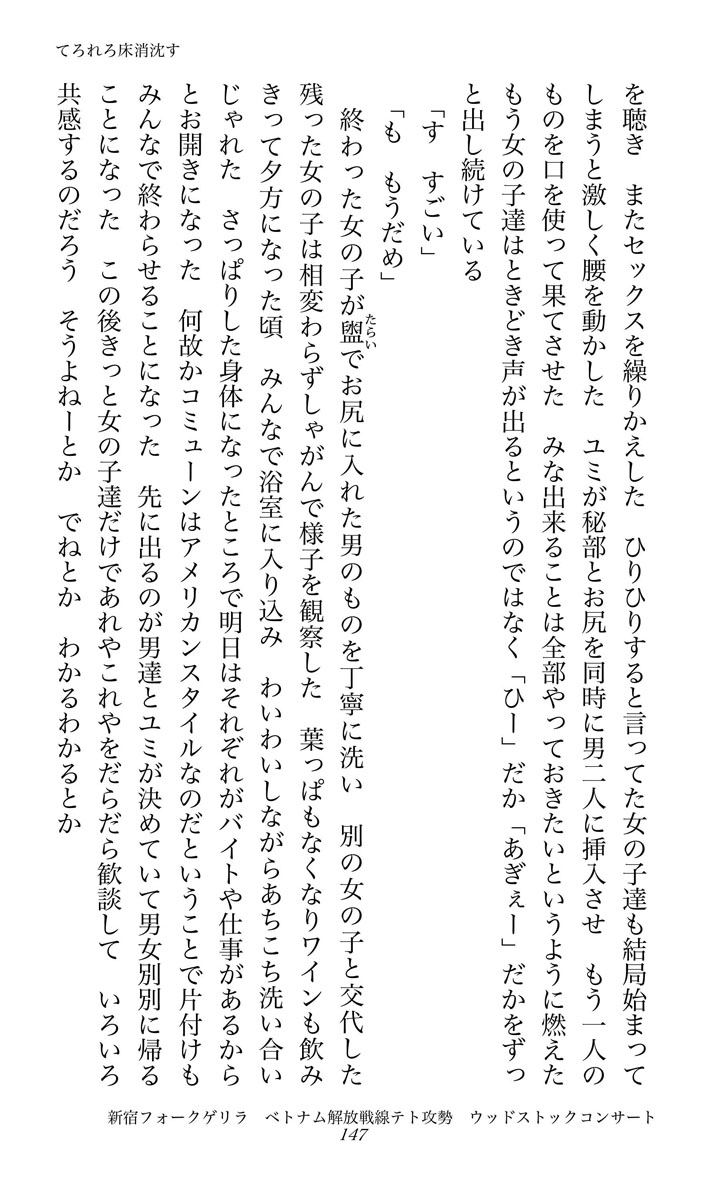 てろれろ床消沈す
を聴き　またセックスを繰りかえした　ひりひりすると言ってた女の子達も結局始まって
しまうと激しく腰を動かした　ユミが秘部とお尻を同時に男二人に挿入させ　もう一人の
ものを口を使って果てさせた　みな出来ることは全部やっておきたいというように燃えた
もう女の子達はときどき声が出るというのではなく「ひー」だか「あぎぇー」だかをずっ
と出し続けている
「す　すごい」
「も　もうだめ」
　終わった女の子が盥でお尻に入れた男のものを丁寧に洗い　別の女の子と交代した
たらい
残った女の子は相変わらずしゃがんで様子を観察した　葉っぱもなくなりワインも飲み
きって夕方になった頃　みんなで浴室に入り込み　わいわいしながらあちこち洗い合い
じゃれた　さっぱりした身体になったところで明日はそれぞれがバイトや仕事があるから
とお開きになった　何故かコミューンはアメリカンスタイルなのだということで片付けも
みんなで終わらせることになった　先に出るのが男達とユミが決めていて男女別別に帰る
ことになった　この後きっと女の子達だけであれやこれやをだらだら歓談して　いろいろ
共感するのだろう　そうよねーとか　でねとか　わかるわかるとか
新宿フォークゲリラ　ベトナム解放戦線テト攻勢　ウッドストックコンサート
147